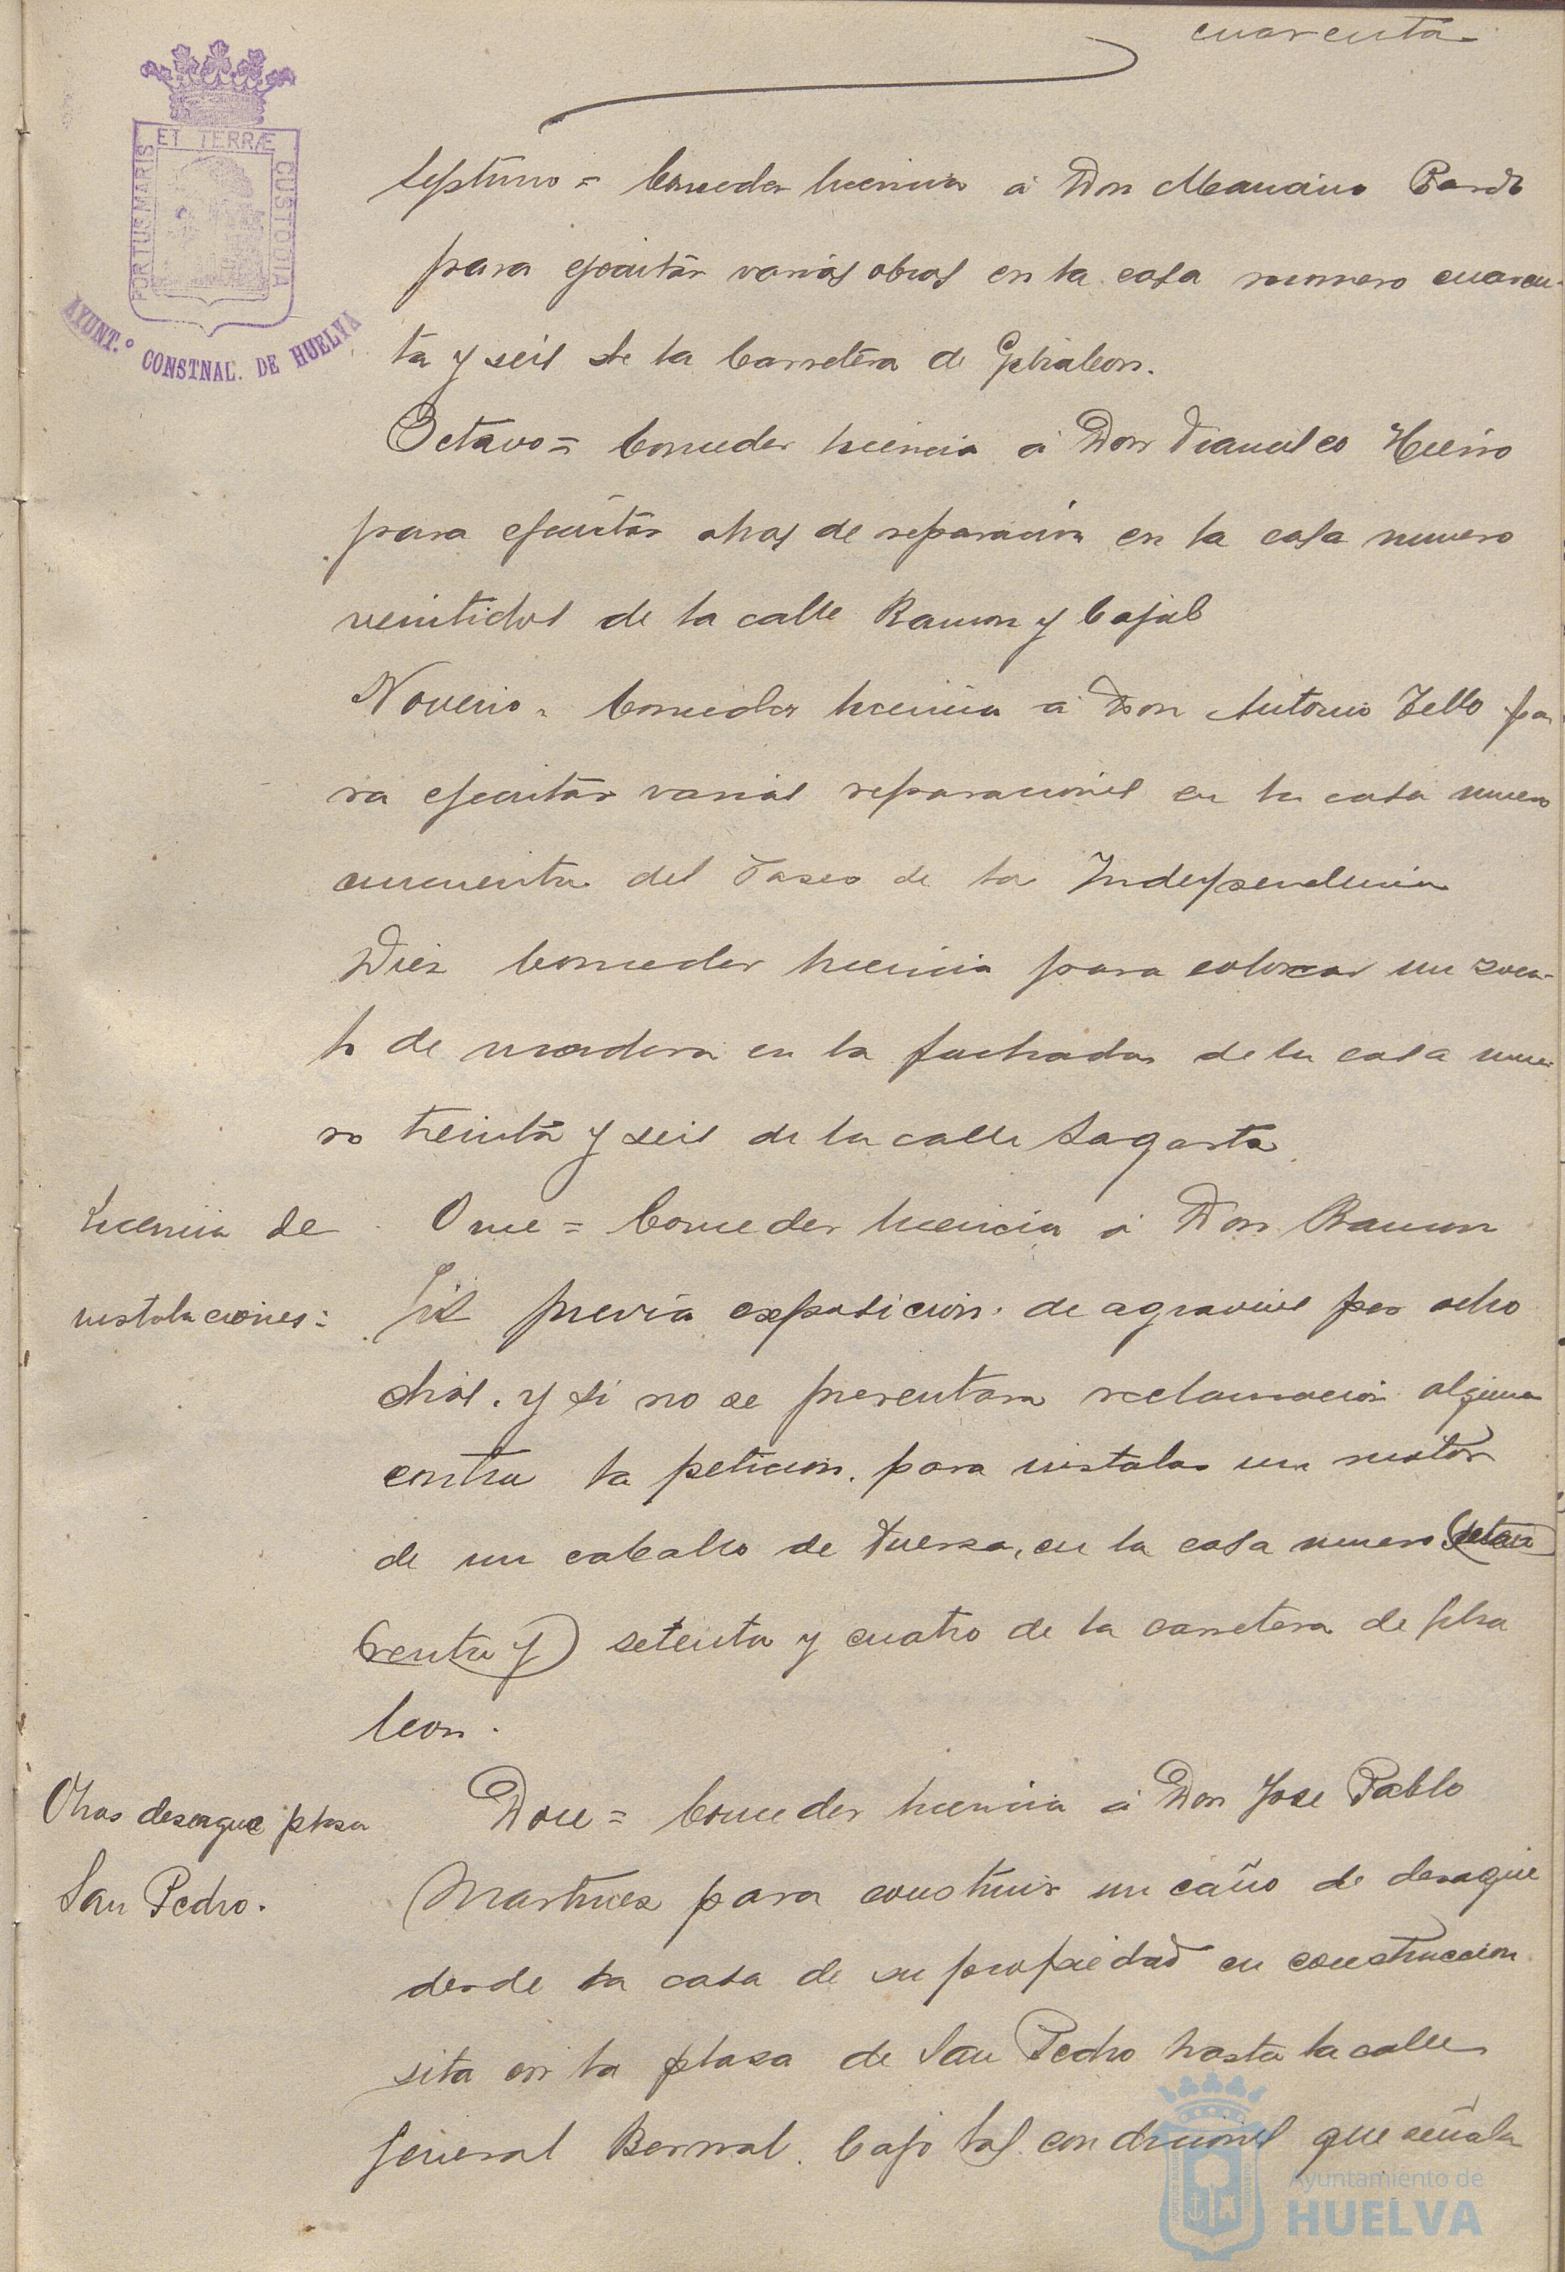 cuarenta
PORTUS MARIS ET TERRÆ CUSTODIA
AYUNT.º CONSTNAL. DE HUELVA
septimo = Conceder licencia á Don Mariano Pardo
para ejecutar varias obras en la casa numero cuaren-
ta y seis de la Carretera de Gibraleon.
Octavo = Conceder licencia á Don Francisco
para ejecutar obras de reparacion en la casa numero
veintidos de la calle Ramon y Cajal
Noveno = Conceder licencia á Don Antonio Tello pa
ra ejecutar varias reparaciones en la casa numero
cincuenta del Paseo de la Independencia
Diez Conceder licencia para colocar un zoca-
lo de madera en la fachada de la casa nume-
ro treinta y seis de la calle Sagasta
Licencia de
instalaciones:
Once = Conceder licencia á Don Ramon
Gil previa exposicion de agravios por ocho
dias. y si no se presentara reclamacion alguna
contra la peticion. para instalar un motor
de un caballo de fuerza, en la casa numero (seten
renta y) setenta y cuatro de la carretera de Gibra
leon.
Obras desague plaza
San Pedro.
Doce = Conceder licencia á Don Jose Pablo
Martinez para construir un caño de desague
desde la casa de su propiedad en construccion
sita en la plaza de San Pedro hasta la calle
General Bernal. bajo las condiciones que señala
Ayuntamiento de
HUELVA